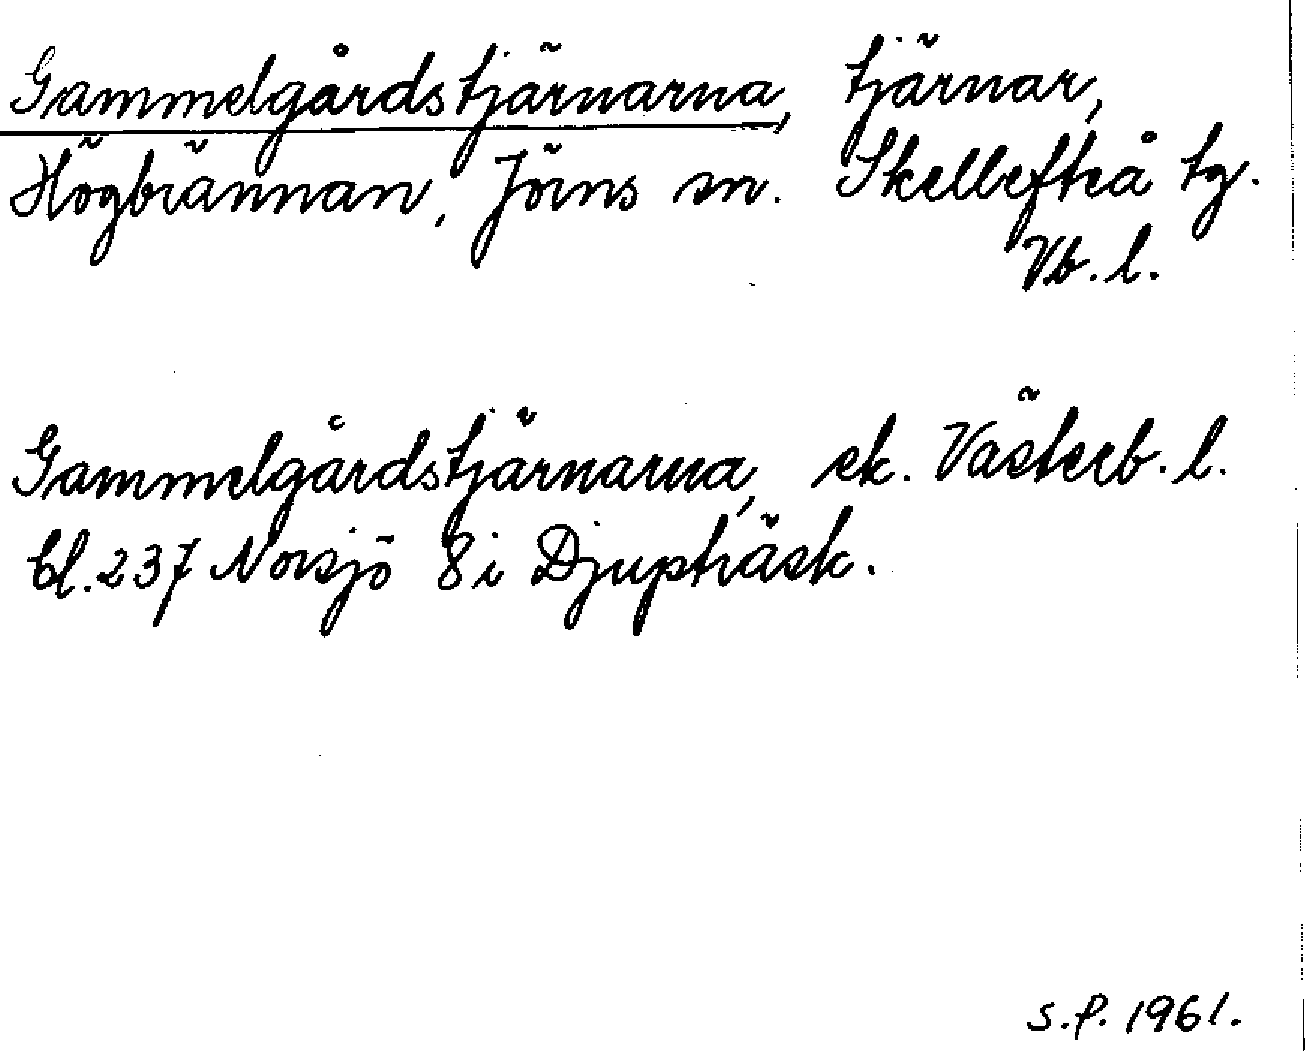 Gammelgårdstjärnarna, tjärnar,
Högbrännan, Jörns sn. Skellefteå tg.
Vb. l.
Gammelgårdstjärnarna, ek. Västerb. l.
bl. 237 Norsjö 8i Djupträsk.
S.P. 1961.